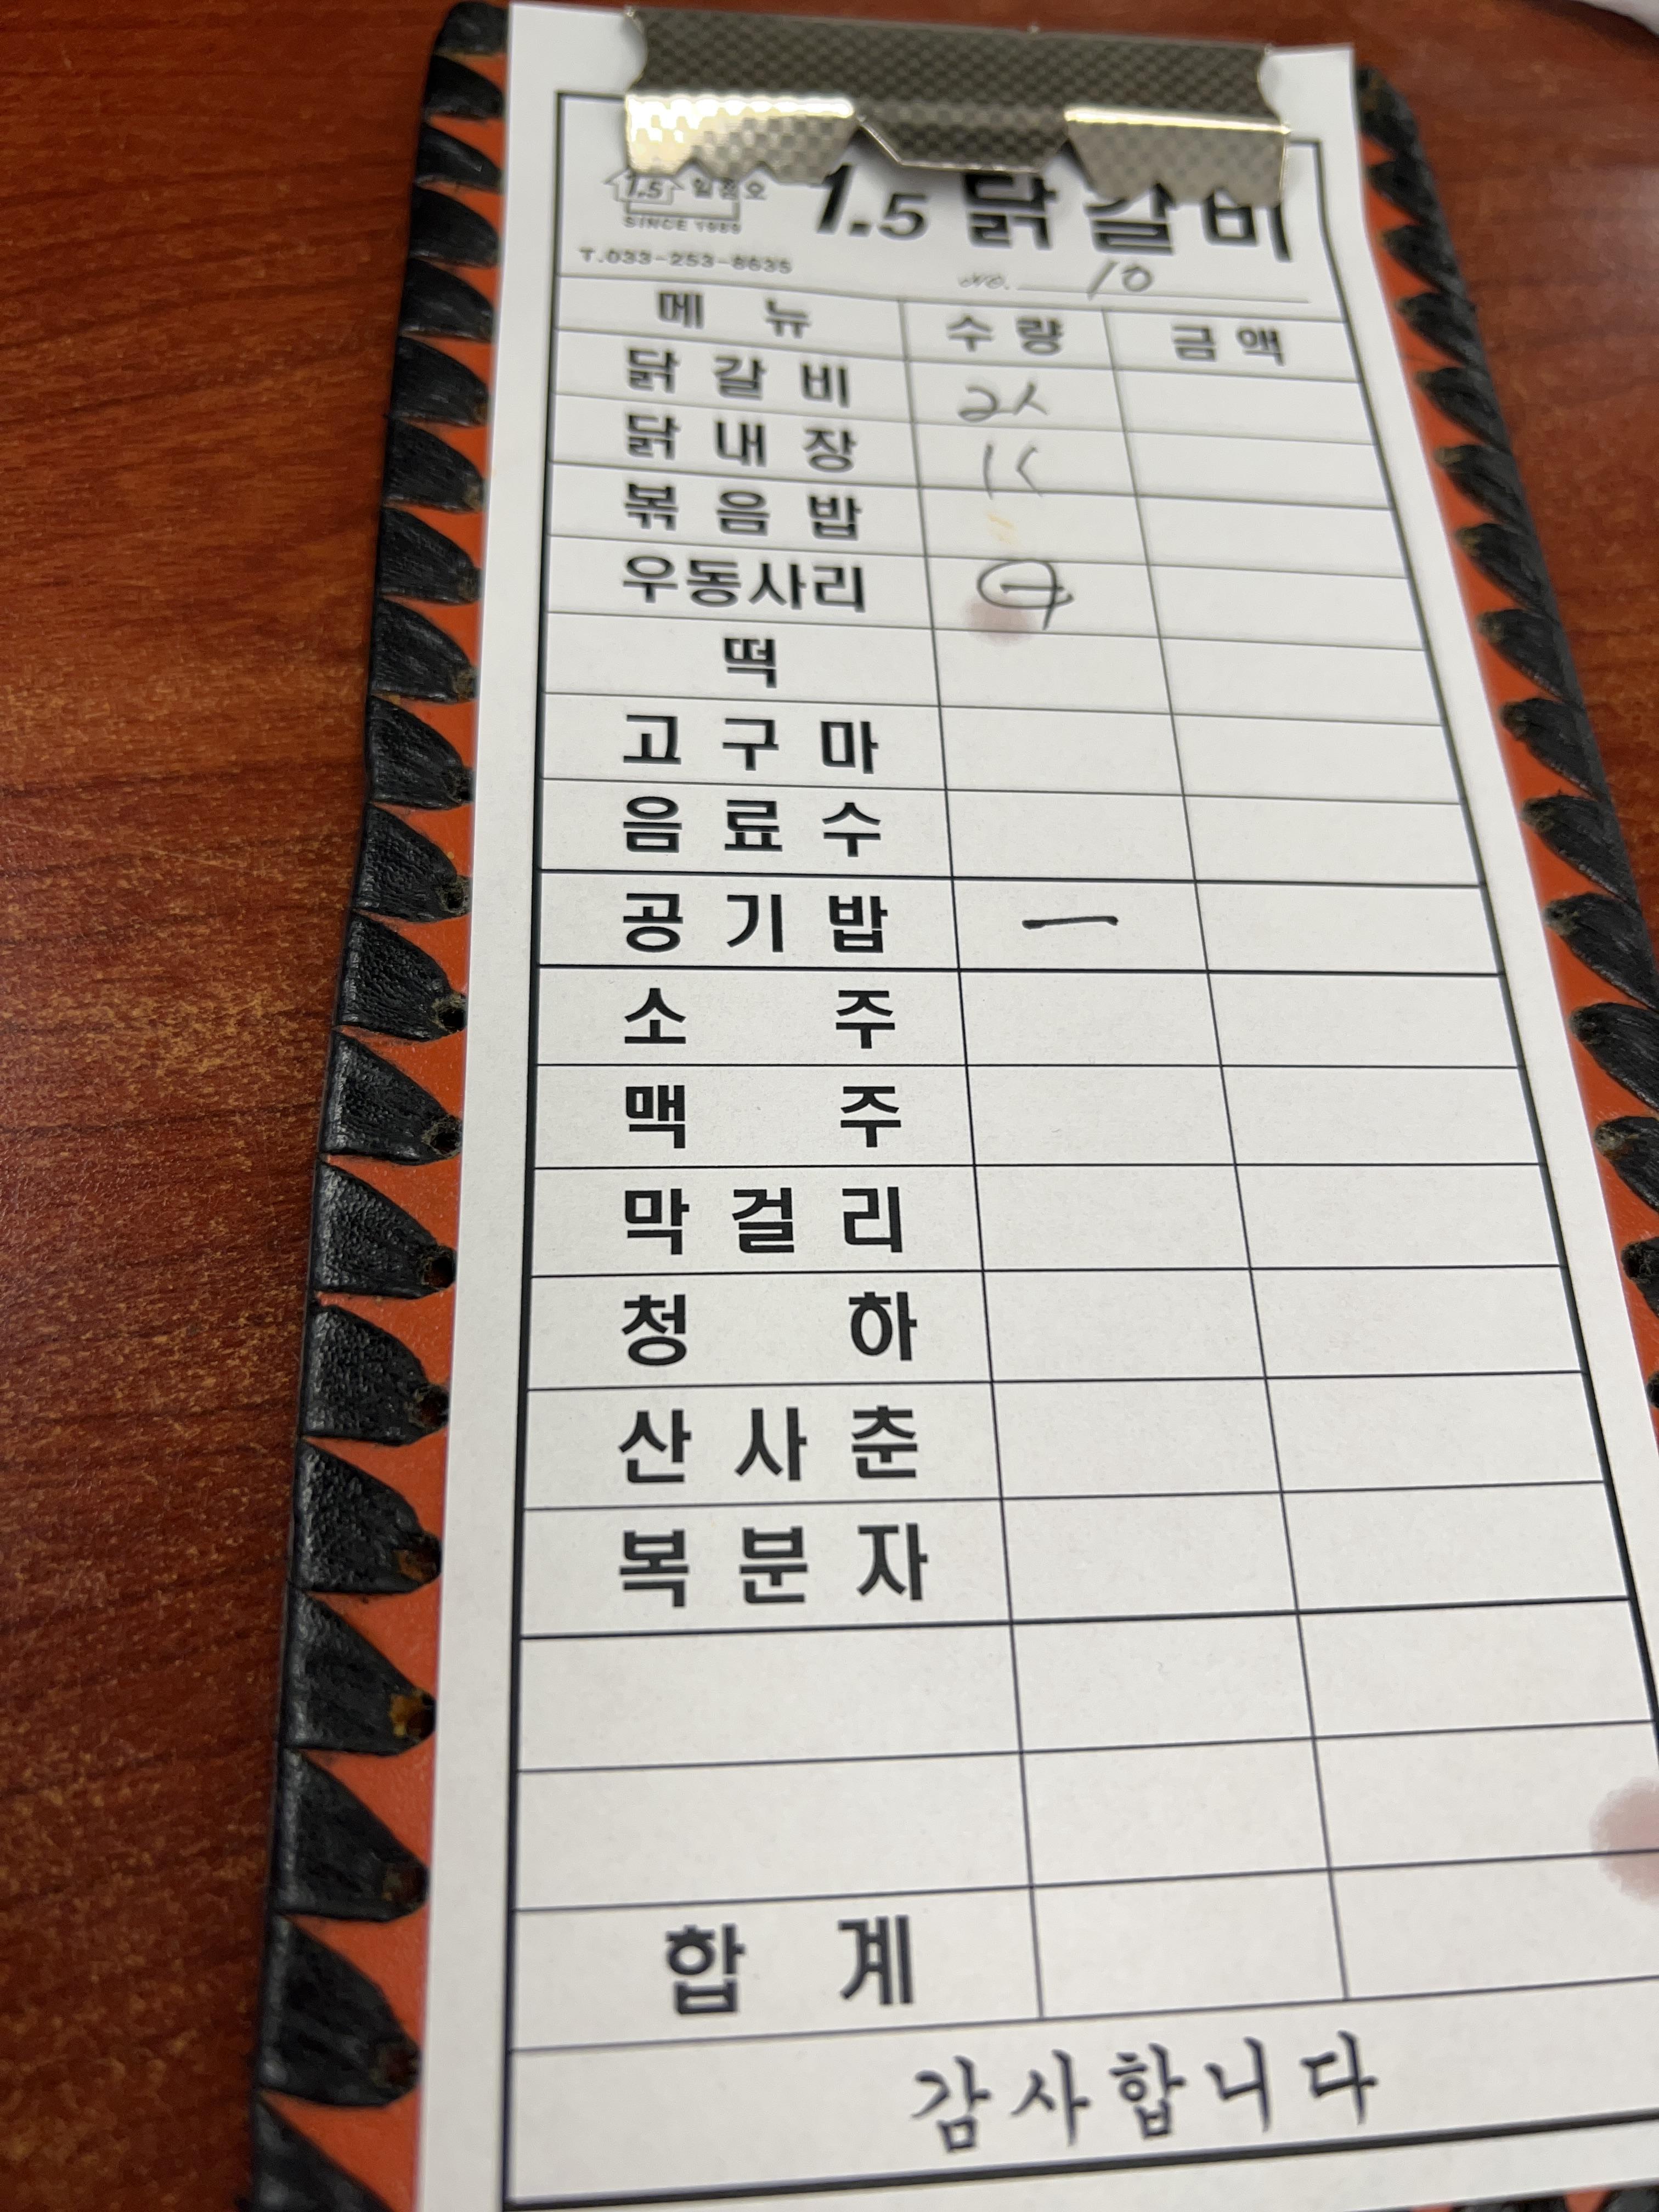 1.5 일점오 1.5 닭갈비
SINCE 1989
T.033-253-8635 No. 10
메 뉴 수 량 금 액
닭 갈 비 2人
닭 내 장
볶 음 밥
우동사리
떡
고 구 마
음 료 수
공 기 밥 一
소 주
맥 주
막 걸 리
청 하
산 사 춘
복 분 자
합 계
감사합니다